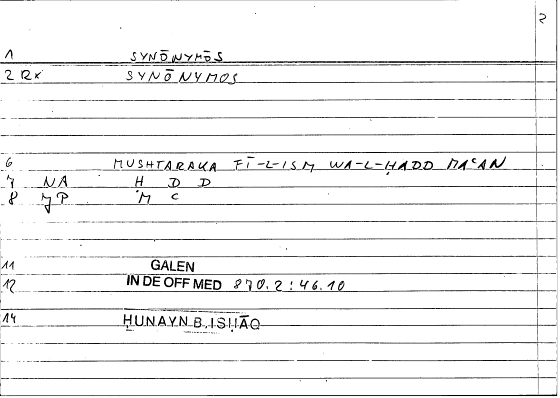 2
1 SYNŌNYMŌS
2 RX SYNŌNYMOS
6 MUSHTARAKA FĪ-L-ISM WA-L-ḤADD MAʿAN
7 NA Ḥ D D
8 JP M C
11 GALEN
12 IN DE OFF MED 870.2:46.10
14 ḤUNAYN B. ISḤĀQ